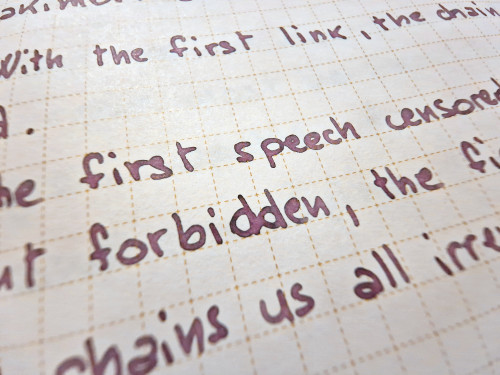 With the first link, the chain
first speech censored
forbidden, the
chains us all